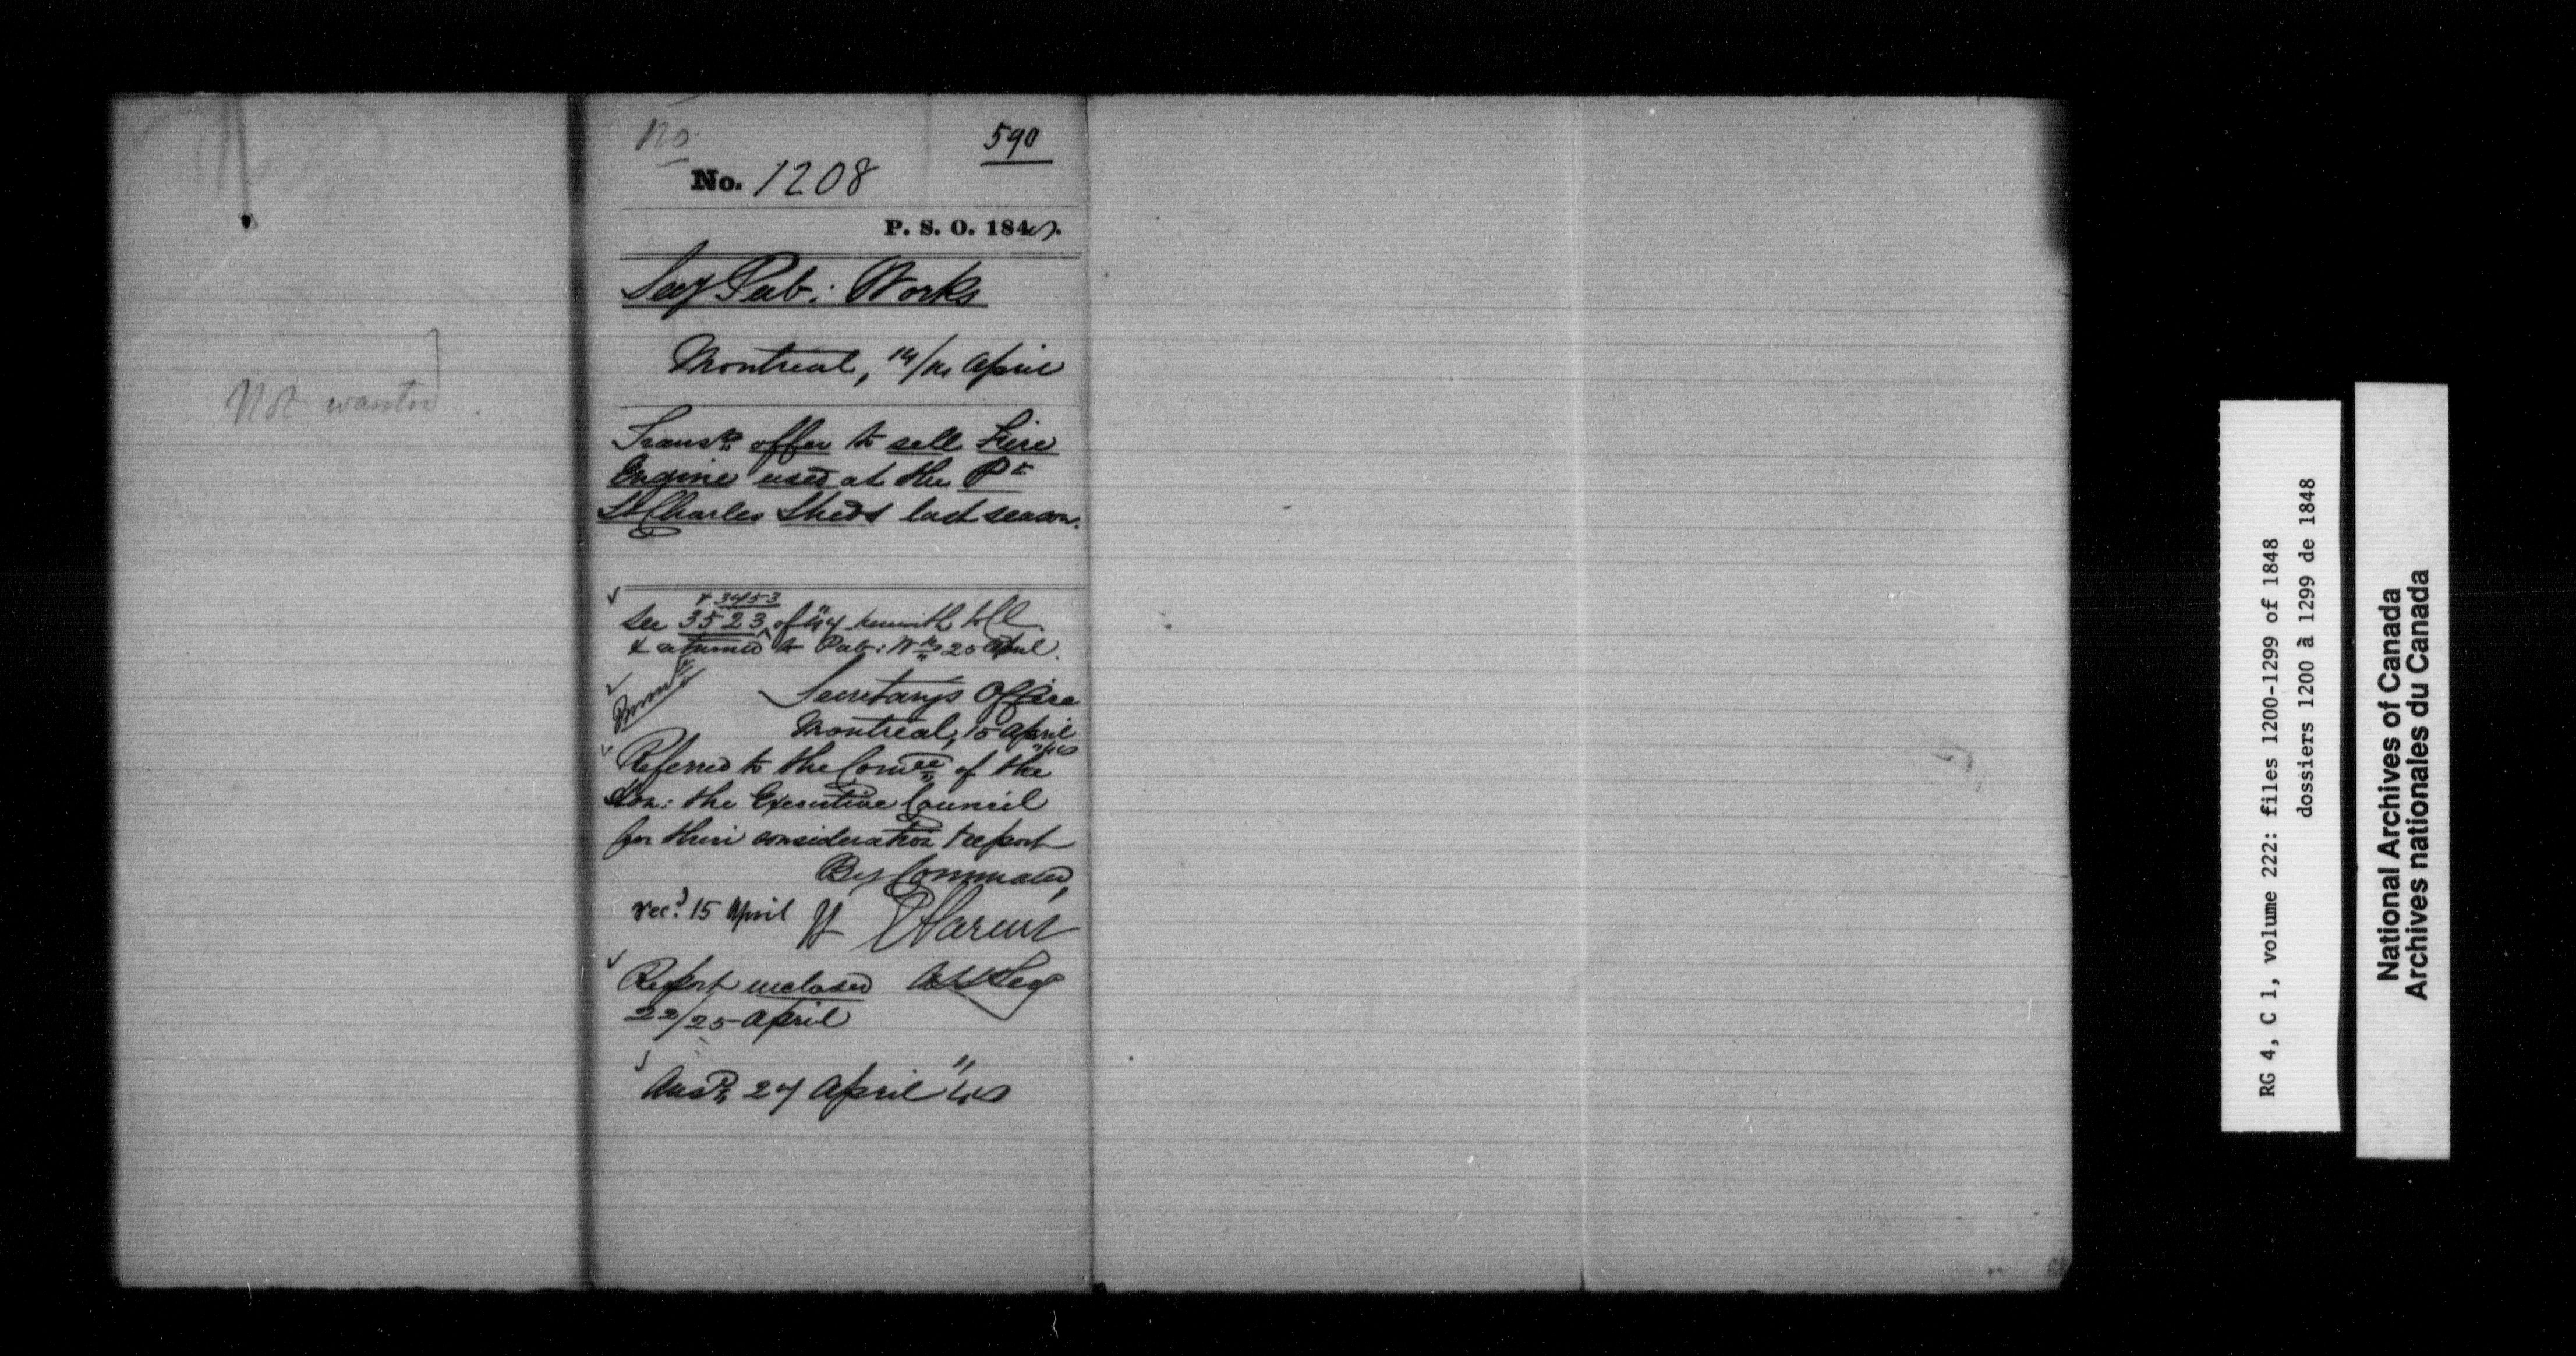 Not wanted
No
590
No. 1208
P. S. O. 1848.
Secy Pub: Works
Montreal, 14/14 April
Transg offer to sell Fire
Engine used at the Pt
St Charles Sheds last season.
& 3453
See 3523 of "47 herewith to C.
& returned to Pub: Wks 25 April.
Secretary's Office
Montreal, 15 April
"48
Referred to the Comee of the
Hon: the Executive Council
for their consideration & report
By Command,
recd 15 April
E Parent
Asst Secy
Report enclosed
22/25 April
Ansd 27 April "48
RG 4, C 1, volume 222: files 1200-1299 of 1848
dossiers 1200 à 1299 de 1848
National Archives of Canada
Archives nationales du Canada